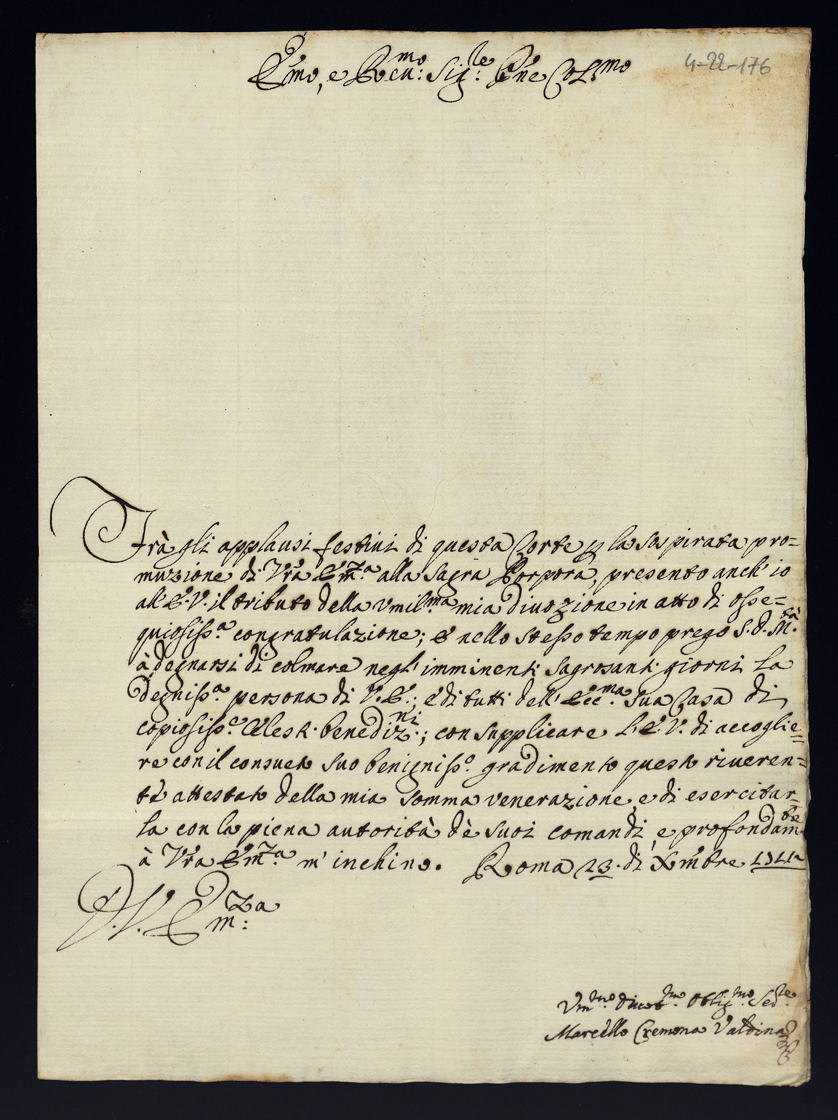 Emo, e Rmo: Sig:re Pne Colmo
4-22-176
Trà gli applausi festivi di questa Corte p la sospirata pro=
muzione di Vra Em:za alla Sagra Porpora, presento anch' io
all' E.V. il tributo della vmil:ma mia divozione in atto di osse=
quiosiss:a congratulazione; e nello stesso tempo prego S.D.M:tà
à degnarsi di colmare negl' imminenti sagrosanti giorni la
degniss:a persona di V.E.; e di tutti dell' Ecc:ma sua Casa di
copiosiss:e Celesti benediz:ni; con supplicare l'E.V. di accoglie=
re con il consueto suo benigniss:o gradimento questo riveren=
te attestato della mia somma venerazione, e di esercitar=
la con la piena autorità dè suoi comandi, e profondam:te
à Vra Em:za m' inchino. Roma 23. di Xmbre
D. V. Em:za
Vm:mo Divot:mo Oblig:mo Ser:re
Marcello Cremona Valdina